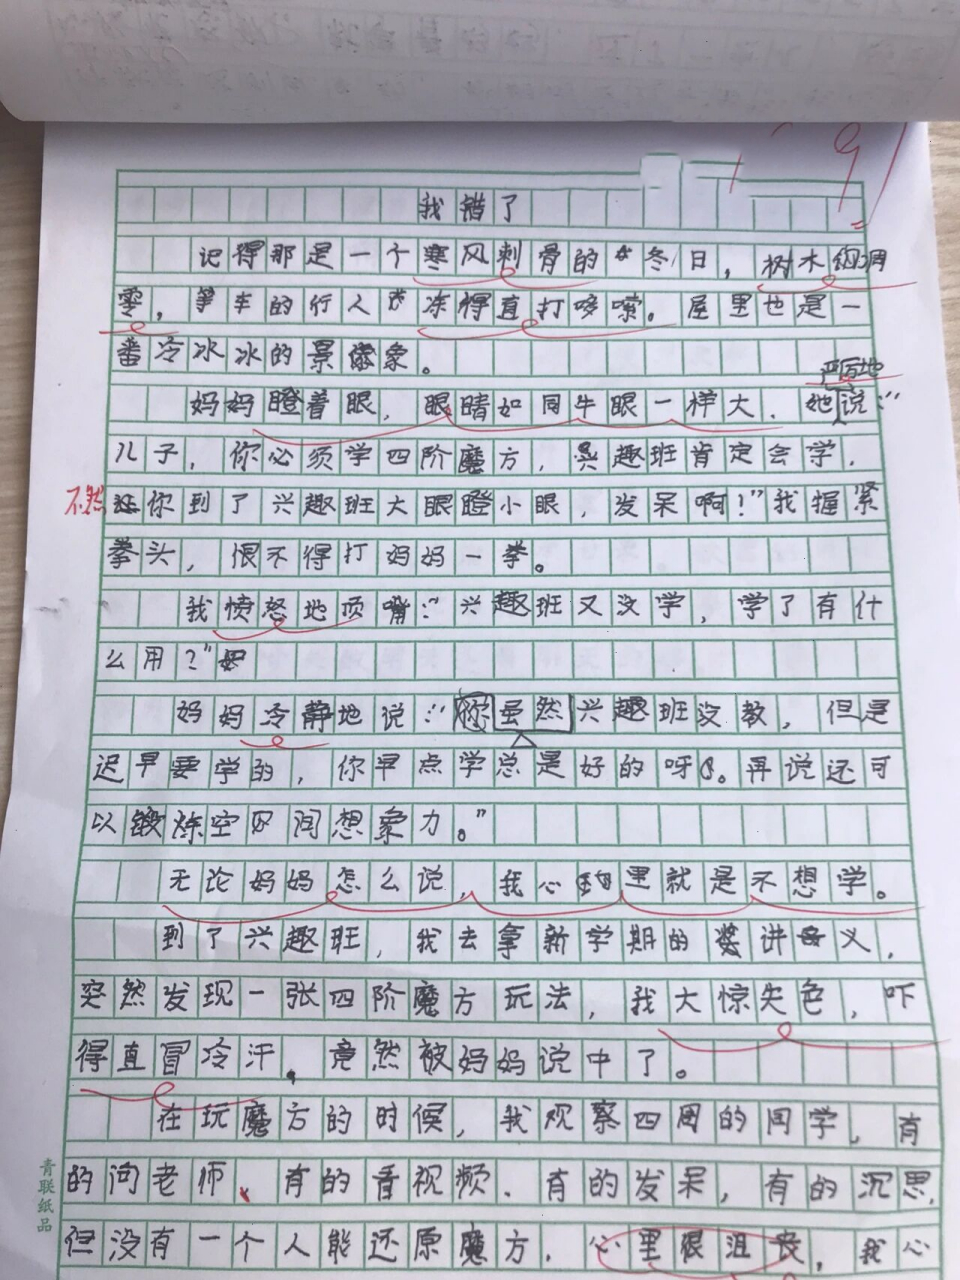 91
我错了
记得那是一个寒风刺骨的冬日，树木凋
零，等车的行人冻得直打哆嗦。屋里也是一
番冷冰冰的景象。
严厉地
妈妈瞪着眼，眼睛如同牛眼一样大，她说：“
儿子，你必须学四阶魔方，兴趣班肯定会学，
不然你到了兴趣班大眼瞪小眼，发呆啊！”我握紧
拳头，恨不得打妈妈一拳。
我愤怒地顶嘴：“兴趣班又没学，学了有什
么用？”
妈妈冷静地说：“你虽然兴趣班没教，但是
迟早要学的，你早点学总是好的呀。再说还可
以锻炼空间想象力。”
无论妈妈怎么说，我心里就是不想学。
到了兴趣班，我去拿新学期的讲义，
突然发现一张四阶魔方玩法，我大惊失色，吓
得直冒冷汗，竟然被妈妈说中了。
在玩魔方的时候，我观察四周的同学，有
的问老师、有的看视频、有的发呆，有的沉思，
但没有一个人能还原魔方，心里很沮丧，我心
青联纸品